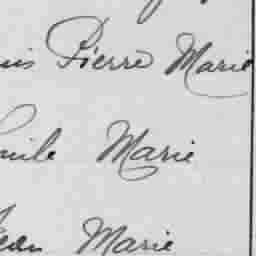 uis Pierre Marie
mile Marie
ean Marie